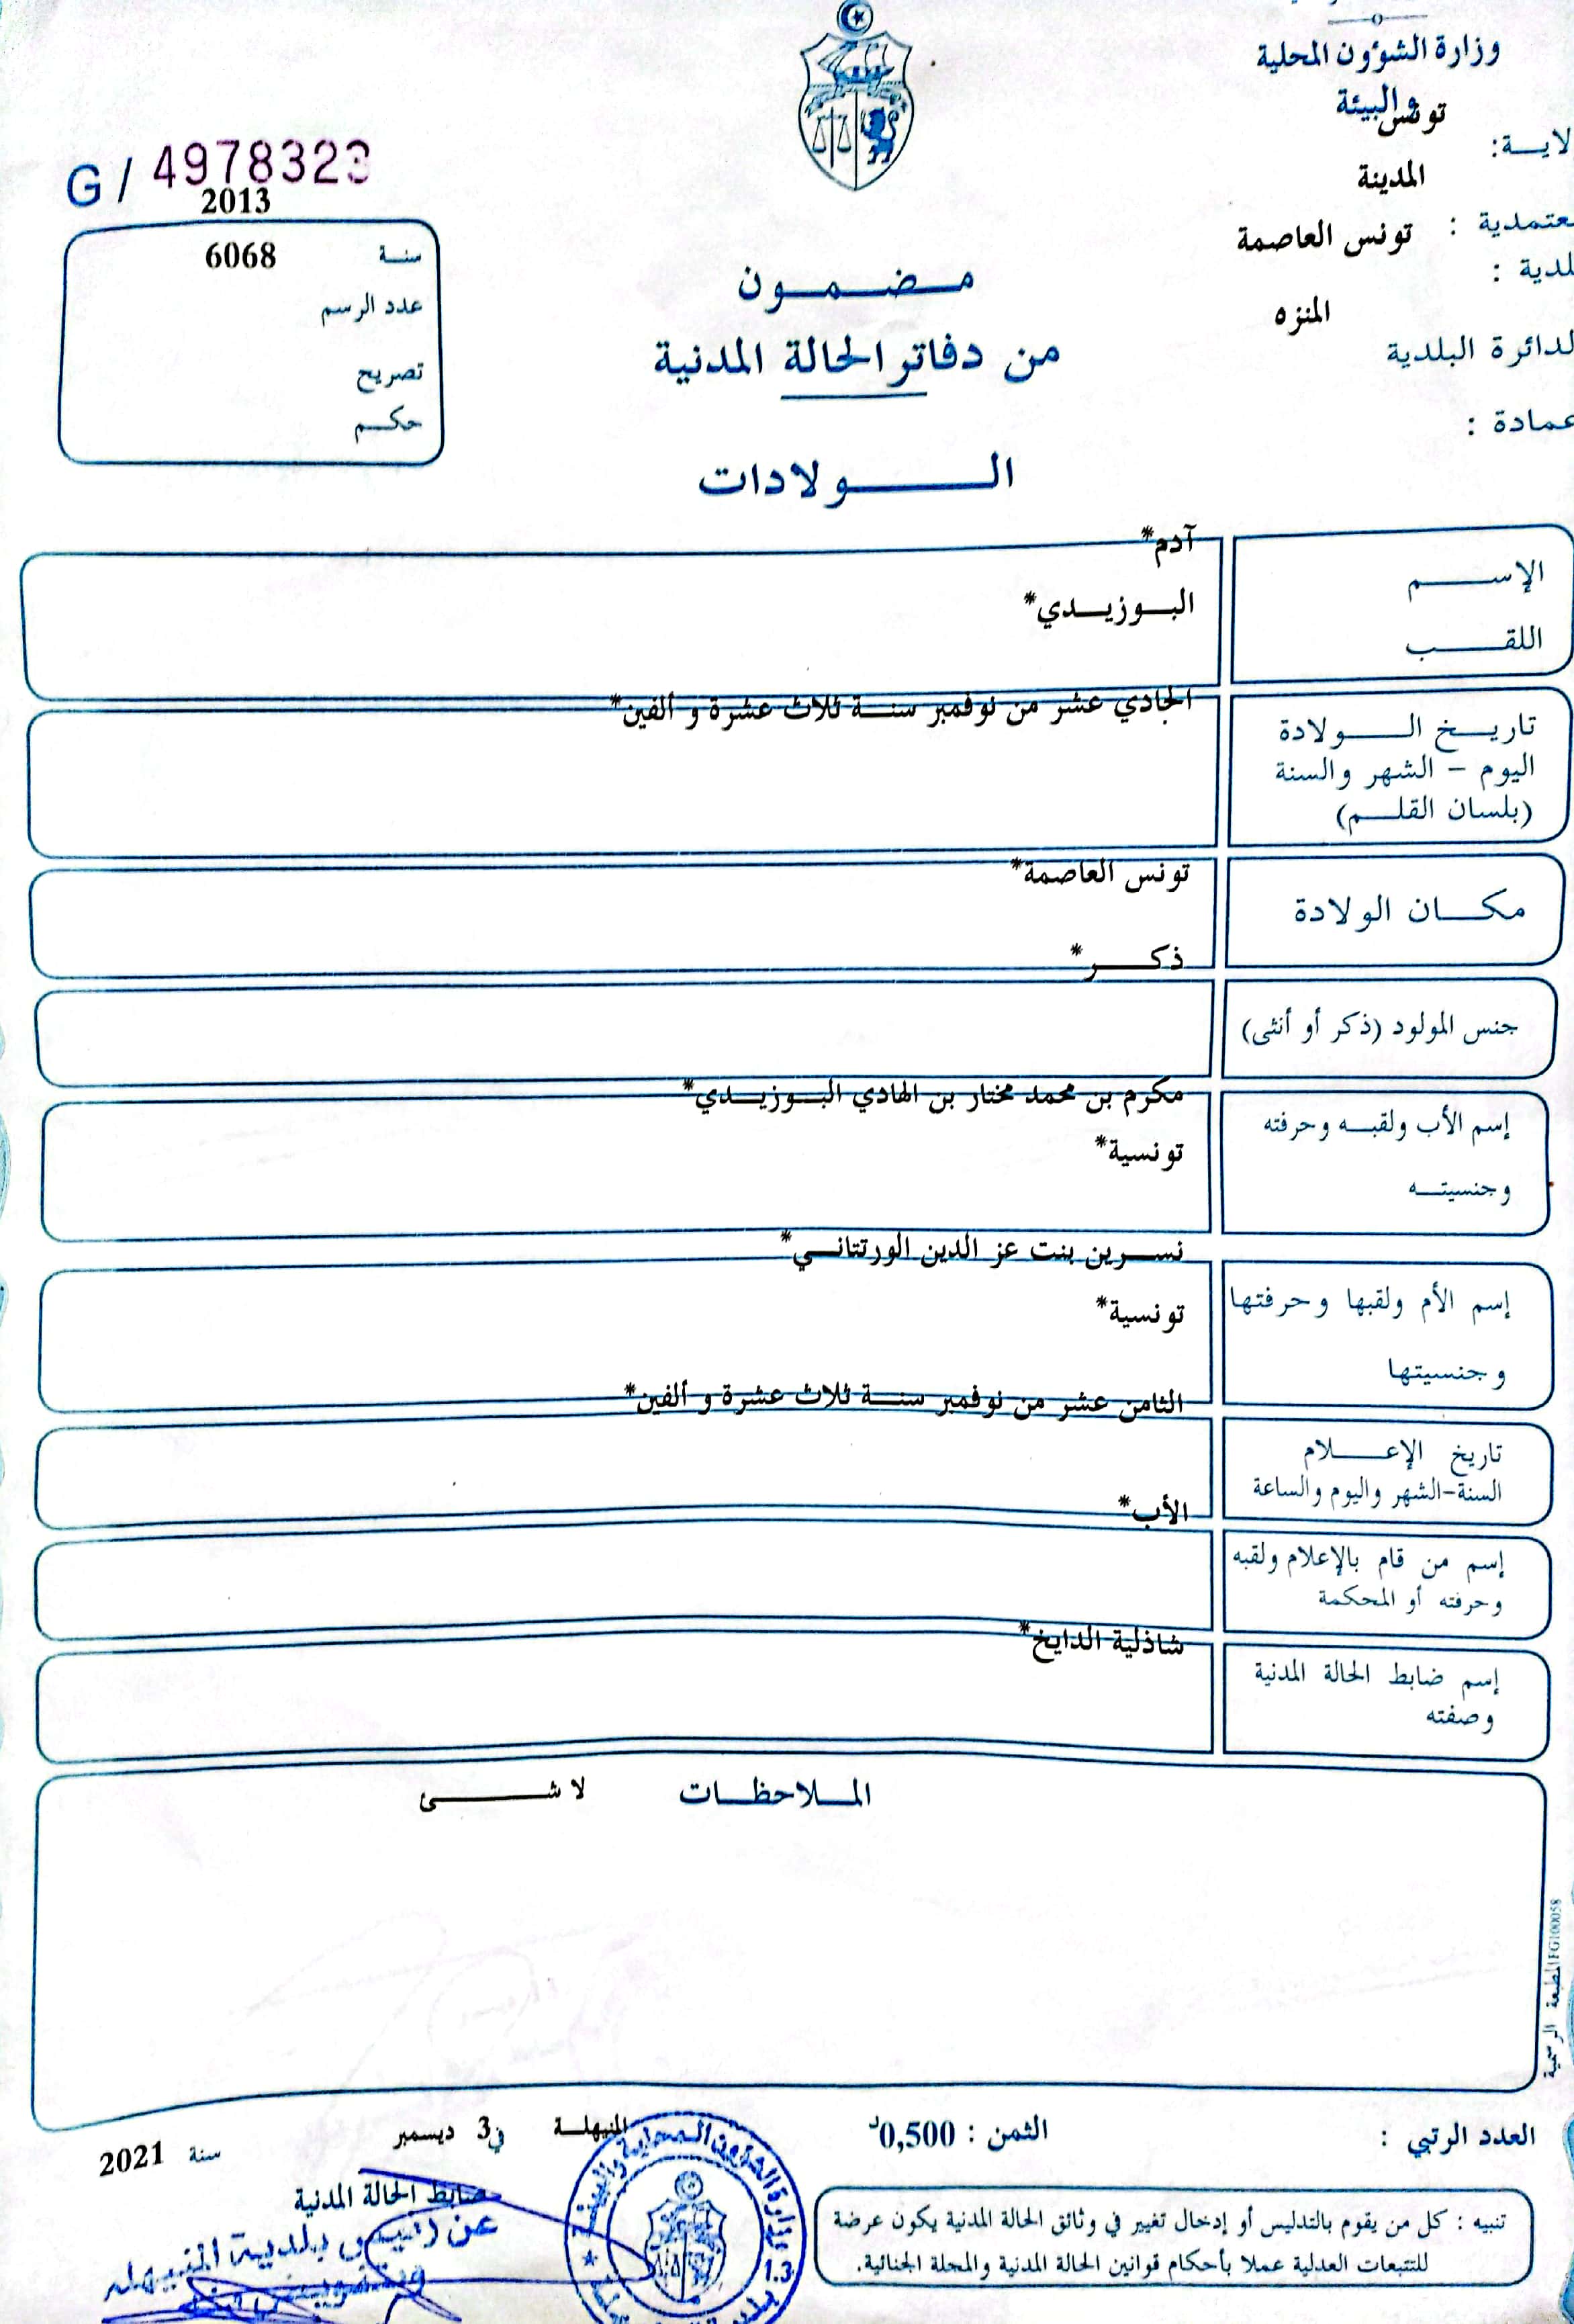 وزارة الشؤون المحلية
والبيئة
تونس
المدينة
تونس العاصمة
المنزه
الدائرة البلدية
عمادة :
G / 4978323
2013
سنة 6068
عدد الرسم
تصريح
حكم
مضمون
من دفاتر الحالة المدنية
الولادات
الإسم آدم*
اللقب البوزيدي*
الحادي عشر من نوفمبر سنة ثلاث عشرة و ألفين*
تاريخ الولادة
اليوم – الشهر والسنة
(بلسان القلم)
تونس العاصمة*
مكان الولادة
ذكر*
جنس المولود (ذكر أو أنثى)
مكرم بن محمد مختار بن الهادي البوزيدي*
إسم الأب ولقبه وحرفته
تونسية*
وجنسيته
نسرين بنت عز الدين الورتتاني*
إسم الأم ولقبها وحرفتها
تونسية*
وجنسيتها
الثامن عشر من نوفمبر سنة ثلاث عشرة و ألفين*
تاريخ الإعلام
السنة-الشهر واليوم والساعة
الأب*
إسم من قام بالإعلام ولقبه
وحرفته أو المحكمة
شاذلية الدايخ*
إسم ضابط الحالة المدنية
وصفته
الملاحظات لا شئ
المطبعة الرسمية FG100058
العدد الرتبي :
الثمن : 0,500د
المنيهلة في 3 ديسمبر سنة 2021
ضابط الحالة المدنية
عن رئيس بلدية المنيهلة
وزارة الشؤون المحلية والبيئة
1.3
تنبيه : كل من يقوم بالتدليس أو إدخال تغيير في وثائق الحالة المدنية يكون عرضة
للتتبعات العدلية عملا بأحكام قوانين الحالة المدنية والمجلة الجنائية.